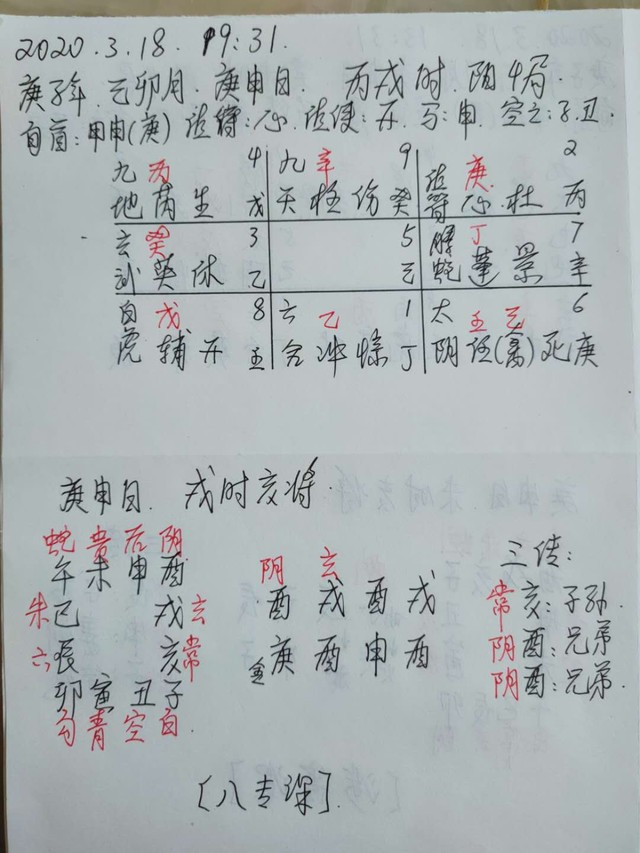 2020.3.18. 19:31.
庚子年.己卯月.庚申日. 丙戌时.阴4局.
旬首:甲申(庚) 值符:心.值使:开.马:申.空亡:子.丑.
九 丙 4 九 辛 9 值 庚 2
地 芮 生 戊 天 柱 伤 癸 符 心 杜 丙
玄 癸 3 5 腾 丁 7
武 英 休 乙 己 蛇 蓬 景 辛
白 戊 8 六 乙 1 太 壬 己 6
虎 辅 开 壬 合 冲 惊 丁 阴 任(禽) 死 庚
庚申日. 戌时亥将.
蛇 贵 后 阴
午 未 申 酉
朱 巳 戌 玄
六 辰 亥 常
卯 寅 丑 子
勾 青 空 白
阴 玄
酉 戌 酉 戌
金 庚 酉 申 酉
三传:
常 亥:子孙.
阴 酉:兄弟
阴 酉:兄弟.
[八专课].